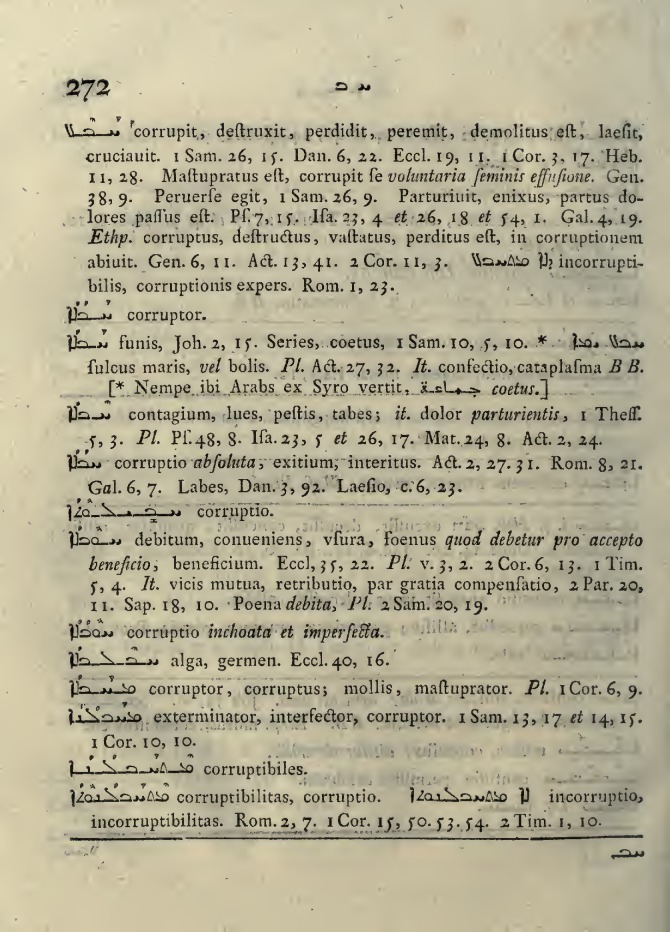 272 ܚ ܒ
ܚܒܠ corrupit, deſtruxit, perdidit, peremit, demolitus eſt, laeſit,
cruciauit. 1 Sam. 26, 15. Dan. 6, 22. Eccl. 19, 11. 1 Cor. 3, 17. Heb.
11, 28. Maſtupratus eſt, corrupit ſe voluntaria ſeminis effuſione. Gen.
38, 9. Peruerſe egit, 1 Sam. 26, 9. Parturiuit, enixus, partus do-
lores paſſus eſt. Pſ. 7, 15. Iſa. 23, 4 et 26, 18 et 54, 1. Gal. 4, 19.
Ethp. corruptus, deſtructus, vaſtatus, perditus eſt, in corruptionem
abiuit. Gen. 6, 11. Act. 13, 41. 2 Cor. 11, 3. ܕܠܐ ܡܬܚܒܠ incorrupti-
bilis, corruptionis expers. Rom. 1, 23.
ܚܒܠܐ corruptor.
ܚܒܠܐ funis, Joh. 2, 15. Series, coetus, 1 Sam. 10, 5, 10. * ܚܒܠ ܝܡܐ
ſulcus maris, vel bolis. Pl. Act. 27, 32. It. confectio, cataplaſma B B.
[* Nempe ibi Arabs ex Syro vertit, جماعة coetus.]
ܚܒܠܐ contagium, lues, peſtis, tabes; it. dolor parturientis, 1 Theſſ.
5, 3. Pl. Pſ. 48, 8. Iſa. 23, 5 et 26, 17. Mat. 24, 8. Act. 2, 24.
ܚܒܠܐ corruptio abſoluta, exitium, interitus. Act. 2, 27. 31. Rom. 8, 21.
Gal. 6, 7. Labes, Dan. 3, 92. Laeſio, c. 6, 23.
ܚܒܝܠܘܬܐ corruptio.
ܚܘܒܠܐ debitum, conueniens, vſura, foenus quod debetur pro accepto
beneficio, beneficium. Eccl, 35, 22. Pl. v. 3, 2. 2 Cor. 6, 13. 1 Tim.
5, 4. It. vicis mutua, retributio, par gratia compenſatio, 2 Par. 20,
11. Sap. 18, 10. Poena debita, Pl. 2 Sam. 20, 19.
ܚܘܒܠܐ corruptio inchoata et imperfecta.
ܚܒܠܒܠܐ alga, germen. Eccl. 40, 16.
ܡܚܒܠܐ corruptor, corruptus; mollis, maſtuprator. Pl. 1 Cor. 6, 9.
ܡܚܒܠܢܐ exterminator, interfector, corruptor. 1 Sam. 13, 17 et 14, 15.
1 Cor. 10, 10.
ܡܬܚܒܠܢܐ corruptibiles.
ܡܬܚܒܠܢܘܬܐ corruptibilitas, corruptio. ܠܐ ܡܬܚܒܠܢܘܬܐ incorruptio,
incorruptibilitas. Rom. 2, 7. 1 Cor. 15, 50. 53. 54. 2 Tim. 1, 10.